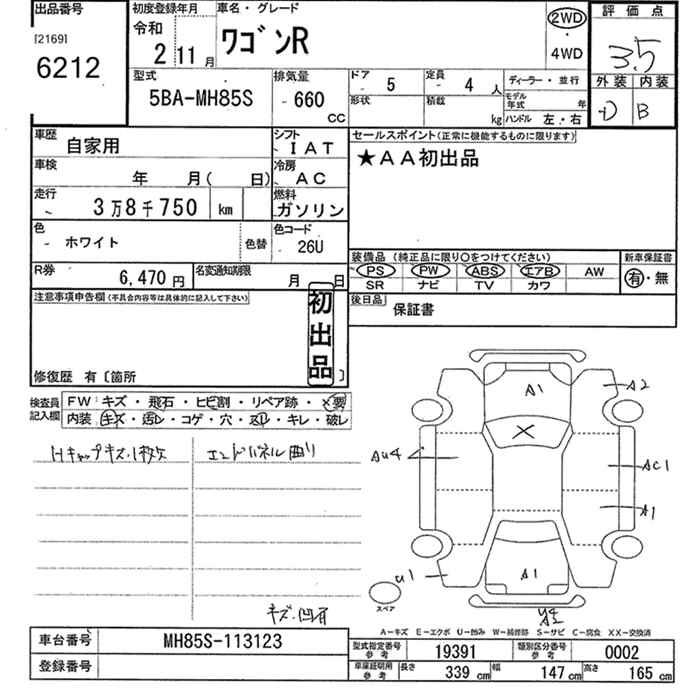 出品番号 初度登録年月 車名・グレード 評価点
[2169] 令和 ワゴンR 2WD
6212 2 11月 ・ 3.5
4WD
型式 排気量 ドア 5 定員 4 人 ディーラー・並行 外装 内装
5BA-MH85S 660 CC 形状 積載 kg モデル年式 年 D B
ハンドル 左・右
車歴 自家用 シフト IAT セールスポイント(正常に機能するものに限ります)
車検 年 月( 日) 冷房 AC ★AA初出品
走行 3万8千750 km 燃料 ガソリン
色 ホワイト 色替 色コード 26U 装備品(純正品に限り○をつけてください) 新車保証書
PS PW ABS エアB AW 有・無
R券 6,470円 名変通知期限 月 日 SR ナビ TV カワ
注意事項申告欄(不具合内容等は具体的に記入して下さい) 初出品 後日品 保証書
修復歴 有〔箇所 〕
検査員記入欄 FW:キズ・飛石・ヒビ割・リペア跡・×要
内装:キズ・汚レ・コゲ・穴・凹レ・キレ・破レ
Hキャップキズ、1枚欠 エンドパネル曲り
キズ・凹有
A1 A2
X
AU4 AC1
A1
U1 A1
スペア
A―キズ E―エクボ U―凹み W―補修跡 S―サビ C―腐食 XX―交換済
車台番号 MH85S-113123 型式指定番号 参考 19391 類別区分番号 参考 0002
登録番号 車庫証明用 参考 長さ 339 cm 幅 147 cm 高さ 165 cm